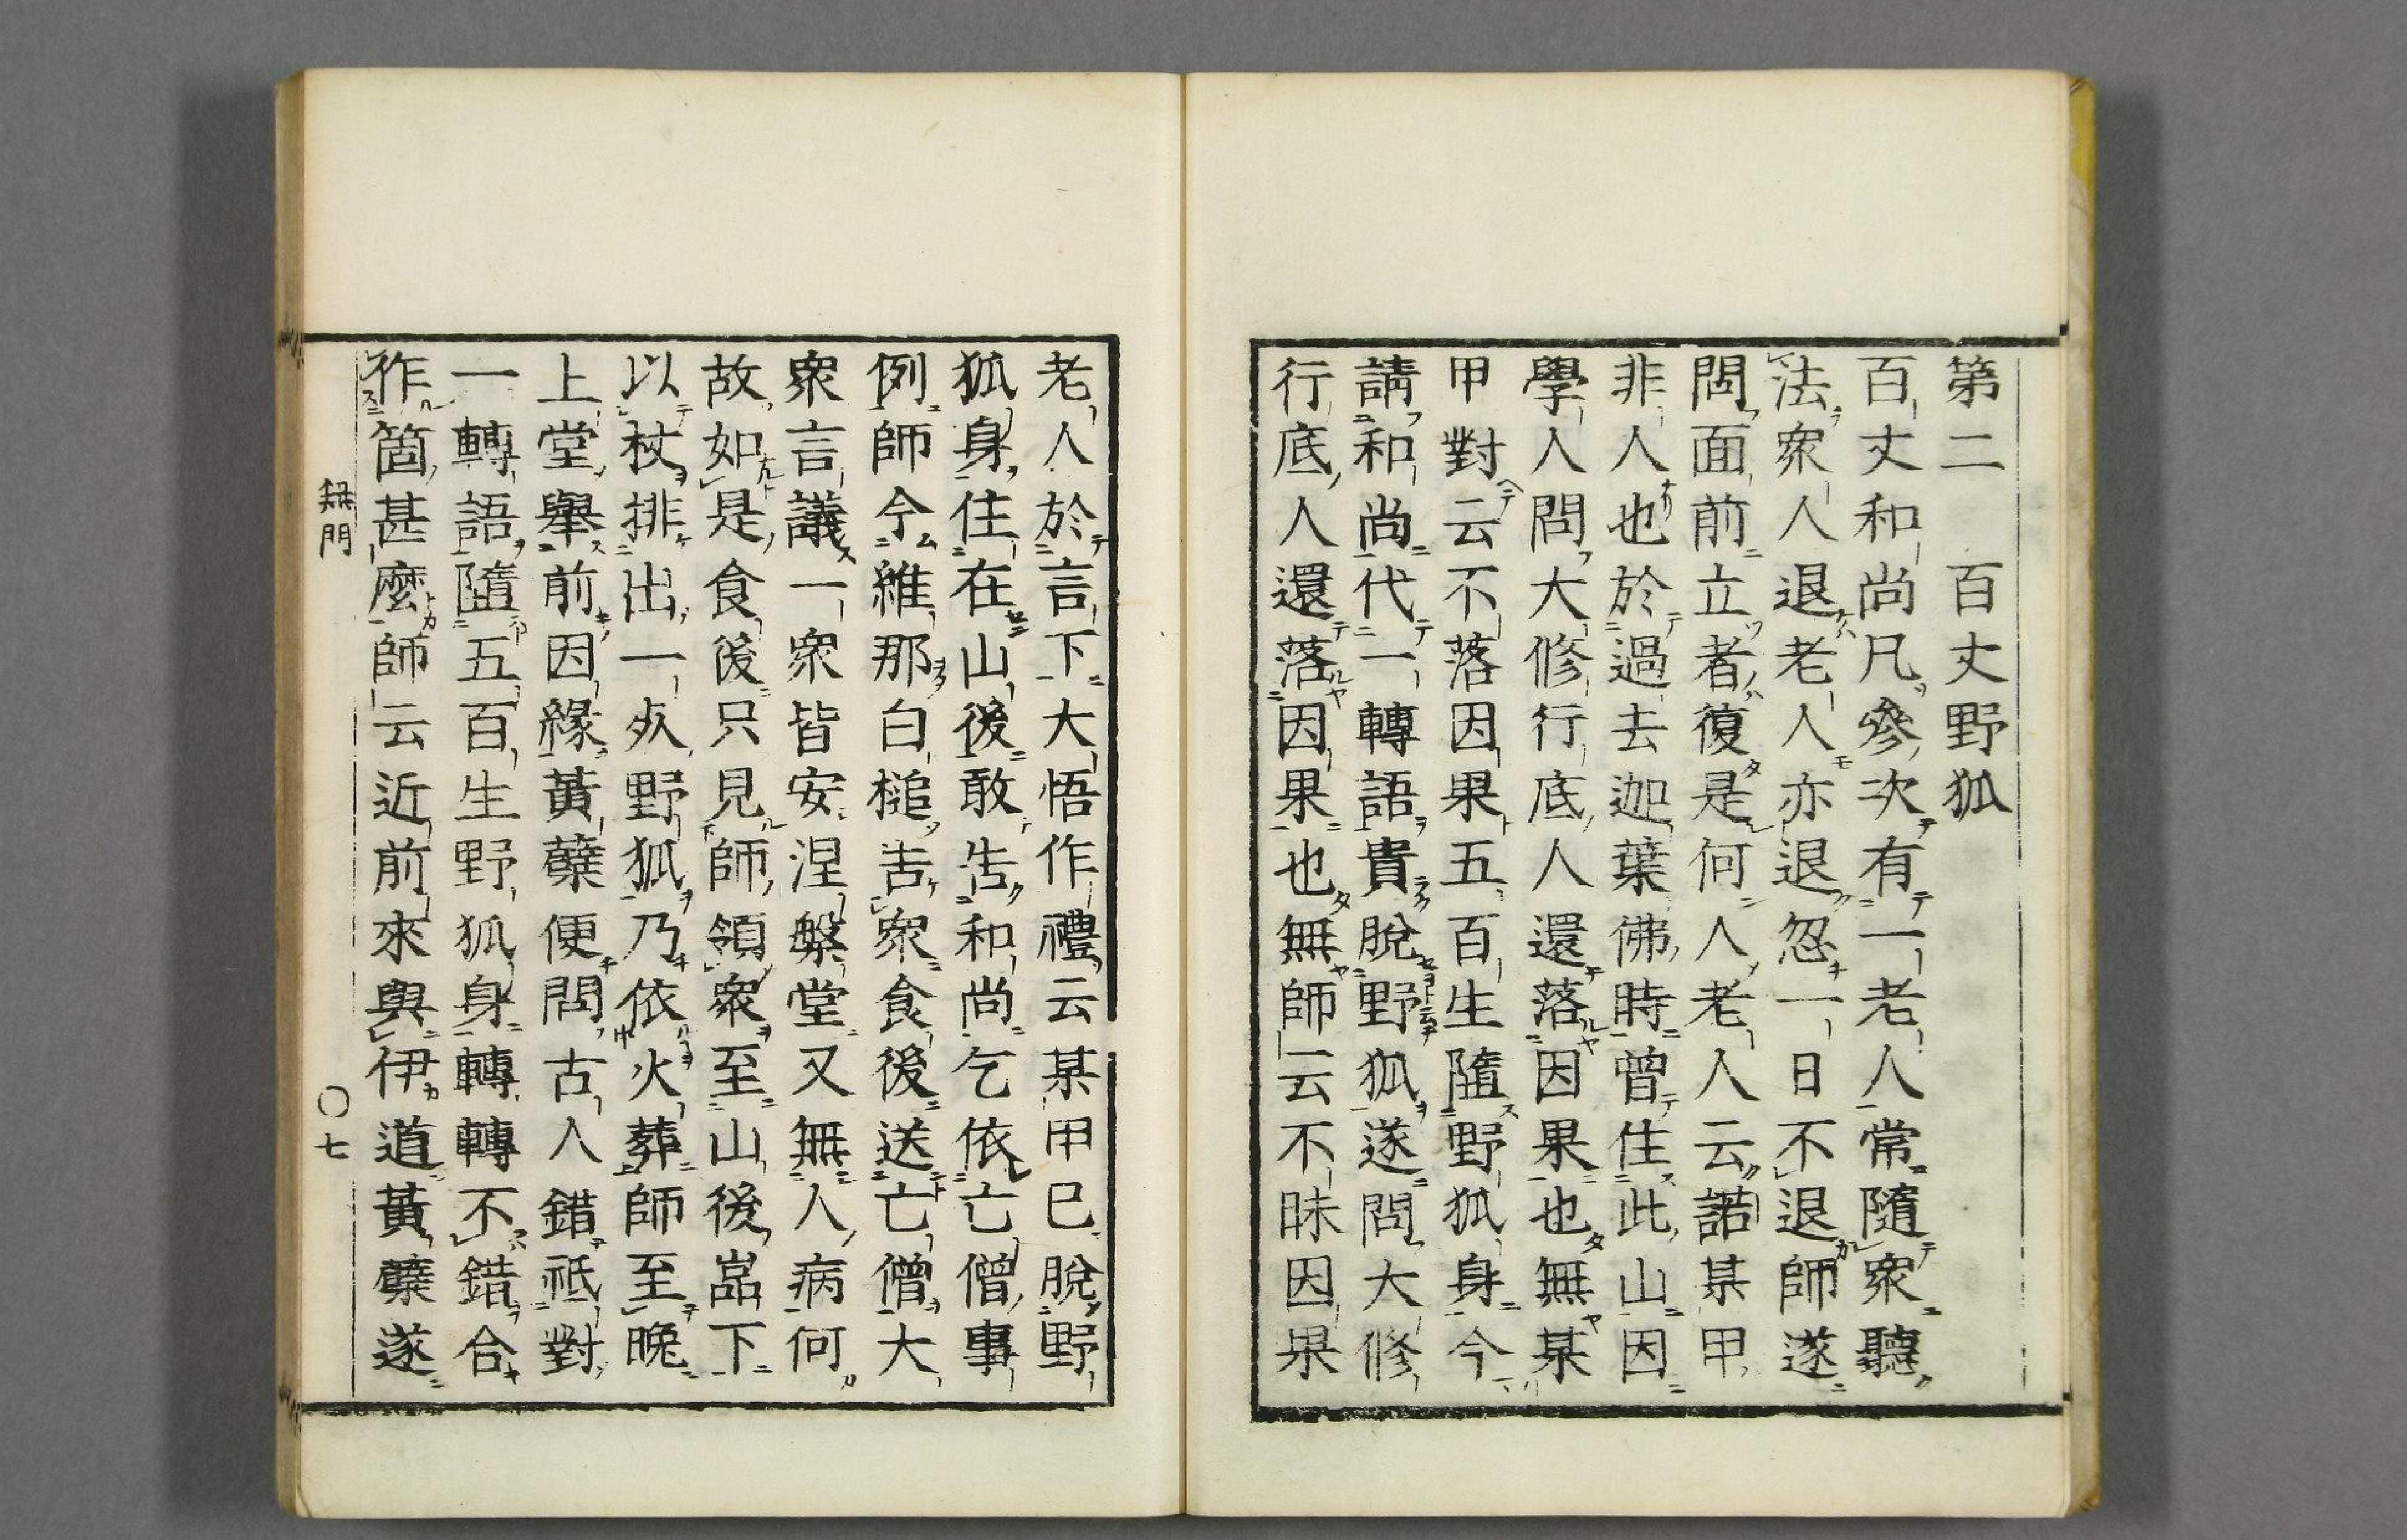 第二　百丈野狐
百丈和尚凡參次有一老人常隨衆聽
法衆人退老人亦退忽一日不退師遂
問面前立者復是何人老人云諾某甲
非人也於過去迦葉佛時曾住此山因
學人問大修行底人還落因果也無某
甲對云不落因果五百生墮野狐身今
請和尚代一轉語貴脫野狐遂問大修
行底人還落因果也無師云不昧因果
老人於言下大悟作禮云某甲已脫野
狐身住在山後敢告和尚乞依亡僧事
例師令維那白槌告衆食後送亡僧大
衆言議一衆皆安涅槃堂又無人病何
故如是食後只見師領衆至山後嵓下
以杖排出一㱕野狐乃依火葬師至晚
上堂擧前因緣黃蘗便問古人錯祗對
一轉語墮五百生野狐身轉轉不錯合
作箇甚麼師云近前來與伊道黃蘗遂
無門　〇七